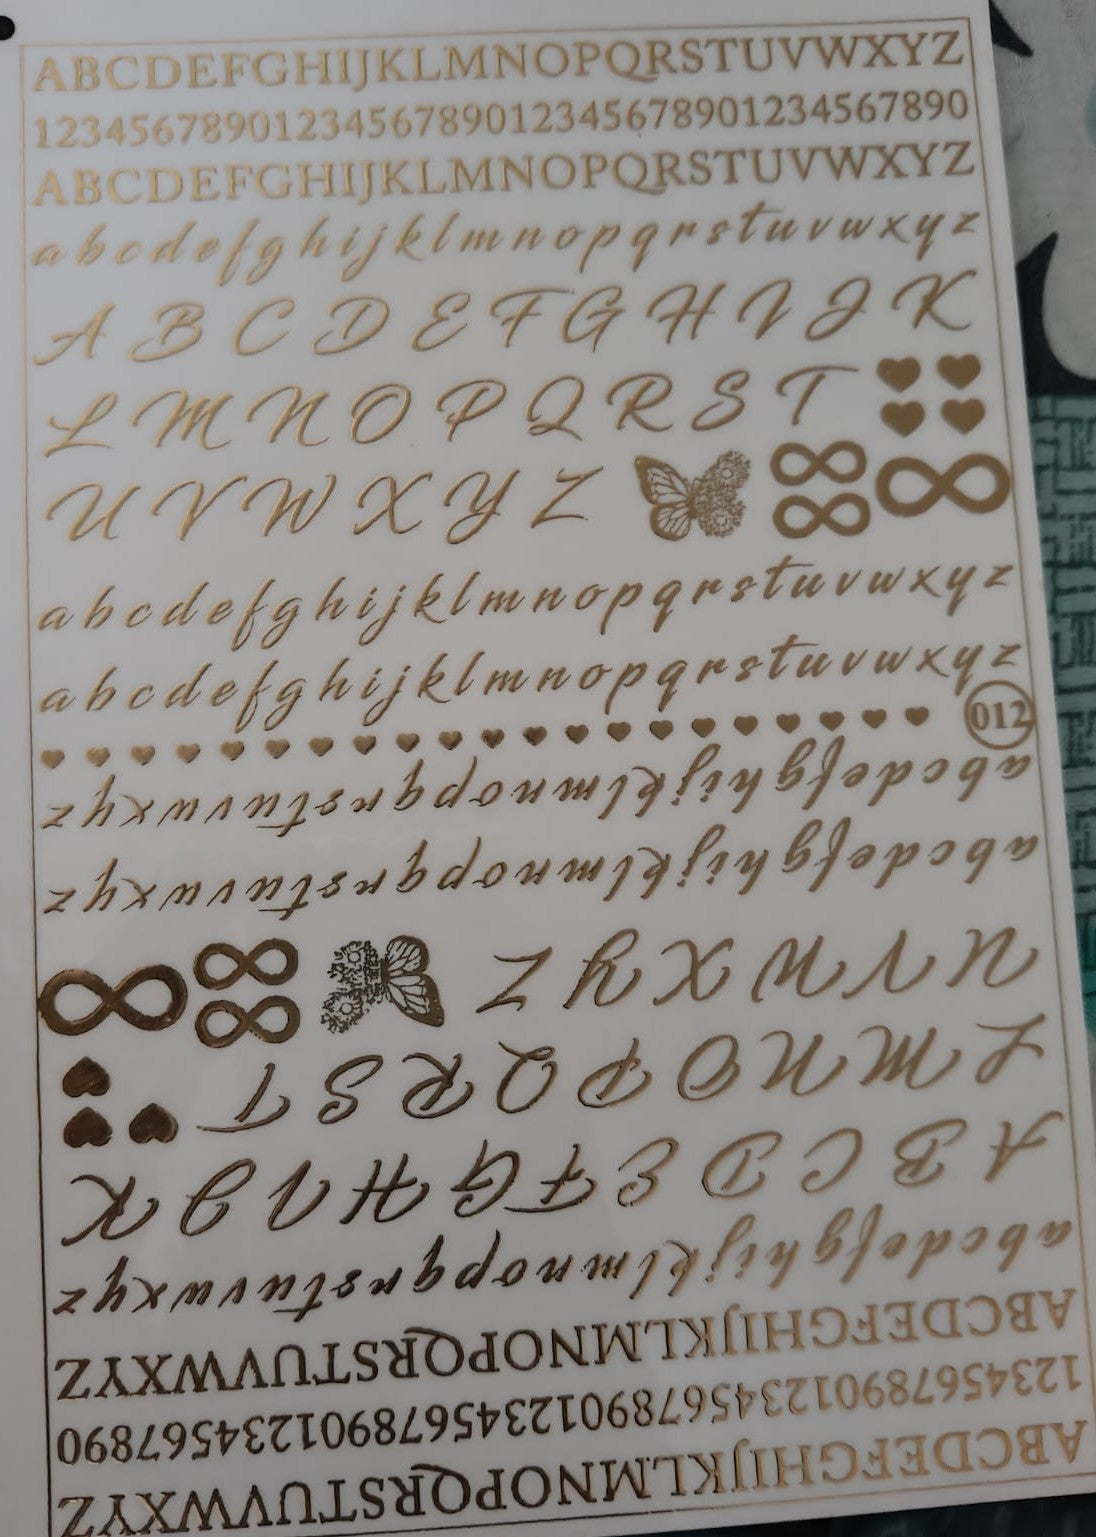 ABCDEFGHIJKLMNOPQRSTUVWXYZ
1234567890123456789012345678901234567890
ABCDEFGHIJKLMNOPQRSTUVWXYZ
abcdefghijklmnopqrstuvwxyz
A B C D E F G H I J K
L M N O P Q R S T
U V W X Y Z
abcdefghijklmnopqrstuvwxyz
abcdefghijklmnopqrstuvwxyz
012
abcdefghijklmnopqrstuvwxyz
abcdefghijklmnopqrstuvwxyz
U V W X Y Z
L M N O P Q R S T
A B C D E F G H I J K
abcdefghijklmnopqrstuvwxyz
ABCDEFGHIJKLMNOPQRSTUVWXYZ
1234567890123456789012345678901234567890
ABCDEFGHIJKLMNOPQRSTUVWXYZ